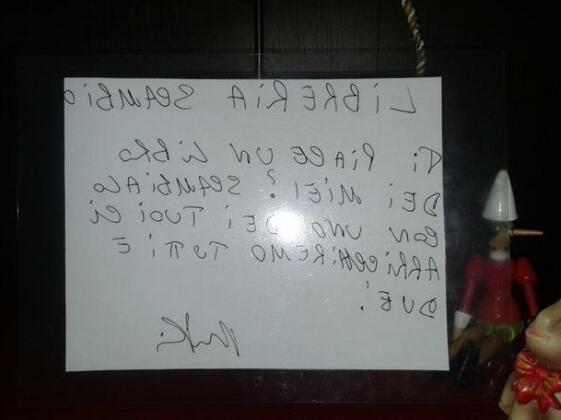 LIBRERIA SCAMBIO
TI PIACE UN LIBRO
DEI MIEI? SCAMBIALO
CON UNO DEI TUOI CI
ARRICCHIREMO TUTTI E
DUE!